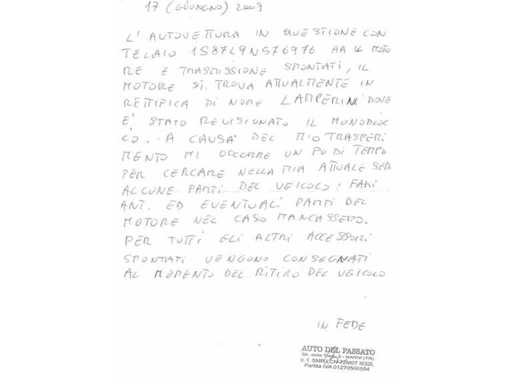 17 (GIUGNO) 2009
L'AUTOVETTURA IN QUESTIONE CON
TELAIO 1S87L9N576976 HA IL MOTO
RE E TRASMISSIONE SMONTATI, IL
MOTORE SI TROVA ATTUALMENTE IN
RETTIFICA DI NOME LAMPERINI DOVE
E' STATO REVISIONATO IL MONOBLOC
CO. A CAUSA DEL MIO TRASFERI
MENTO MI OCCORRE UN PO DI TEMPO
PER CERCARE NELLA MIA ATTUALE SEDE
ALCUNE PARTI DEL VEICOLO: FARI
ANT. ED EVENTUALI PARTI DEL
MOTORE NEL CASO MANCASSERO.
PER TUTTI GLI ALTRI ACCESSORI
SMONTATI VENGONO CONSEGNATI
AL MOMENTO DEL RITIRO DEL VEICOLO
IN FEDE
AUTO DEL PASSATO
Partita IVA